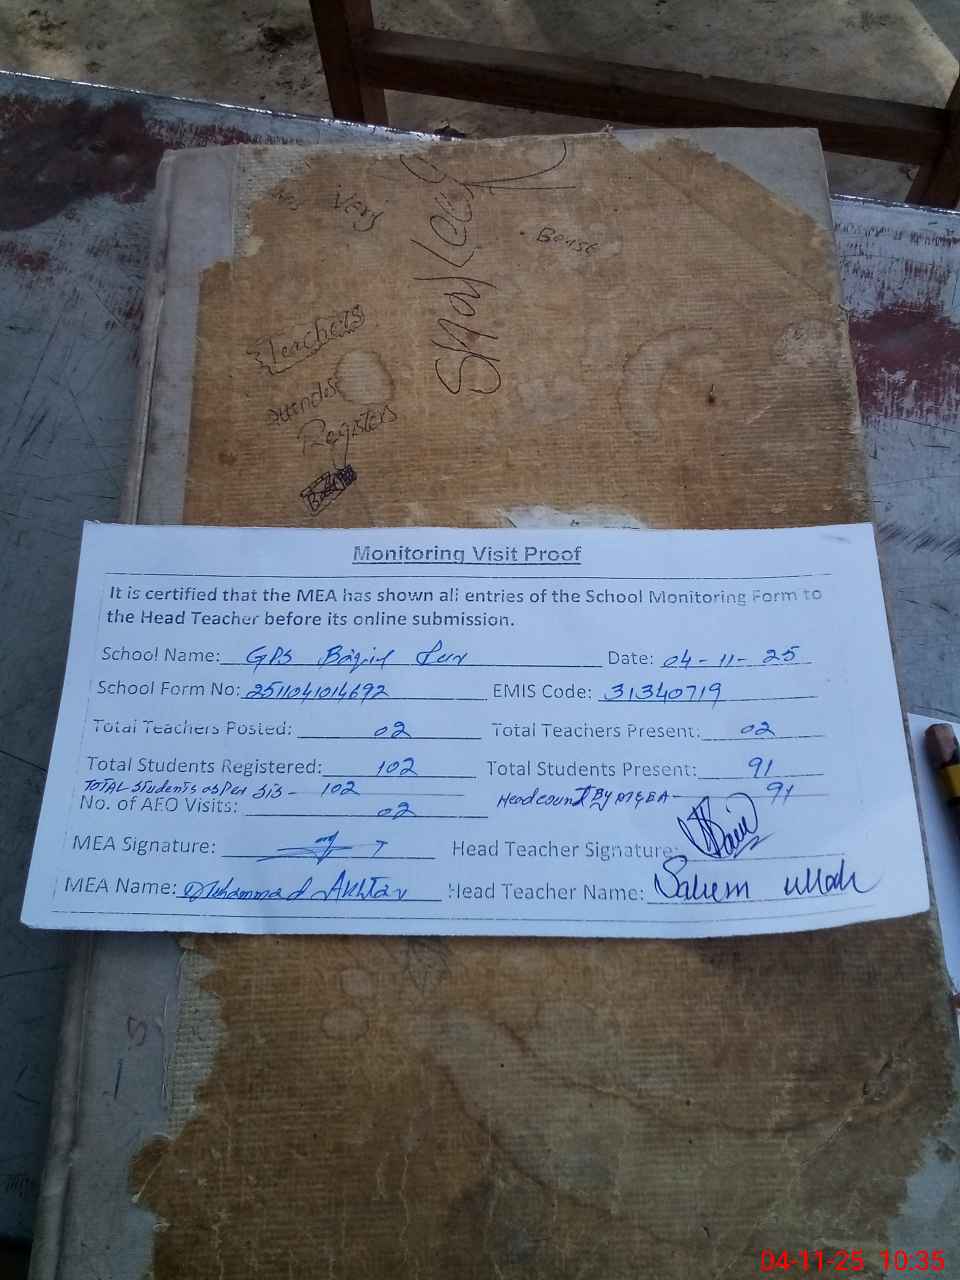 Very
Bouse
Shakeel
Teachers
Registers
Monitoring Visit Proof
It is certified that the MEA has shown all entries of the School Monitoring Form to
the Head Teacher before its online submission.
School Name: GPS Date: 04-11-25
School Form No: 2511041014692 EMIS Code: 31340719
Total Teachers Posted: 02 Total Teachers Present: 02
Total Students Registered: 102 Total Students Present: 91
Total Students as Per SIS - 102 Headcount By MEA - 91
No. of AEO Visits: 02
MEA Signature: Head Teacher Signature:
MEA Name: Muhammad Akhtar Head Teacher Name: Saleem ullah
04-11-25 10:35